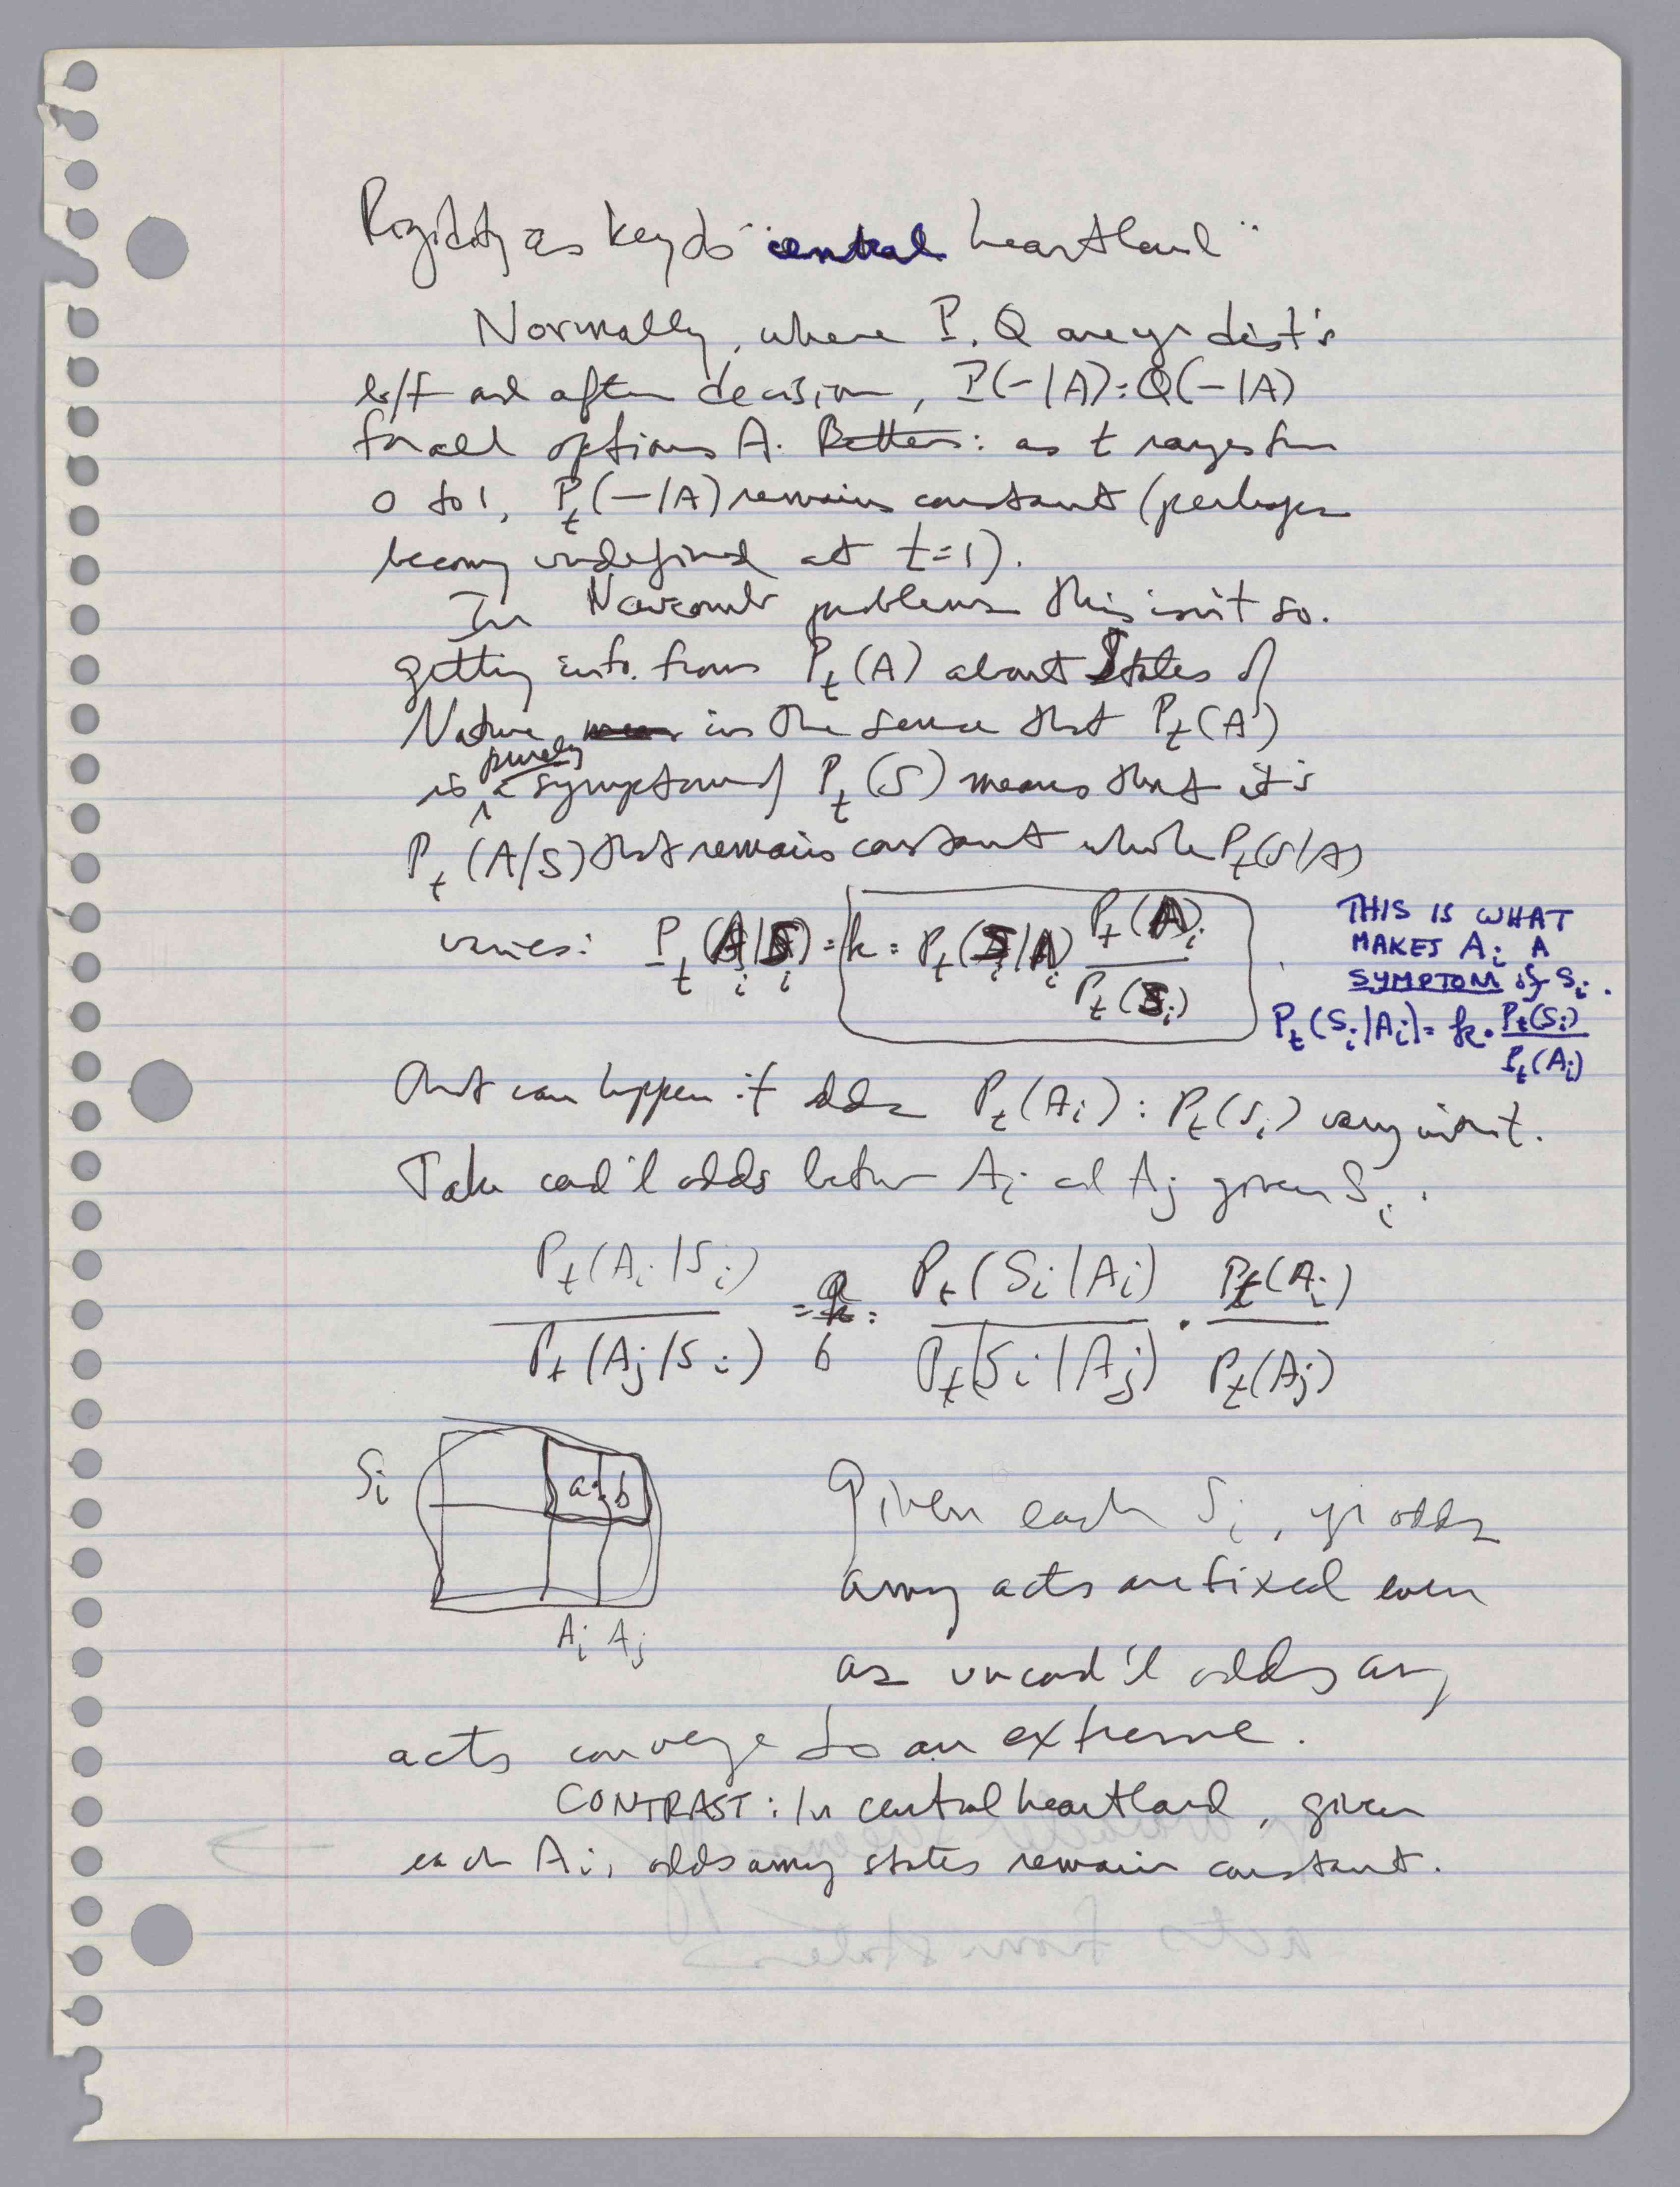 Rigidity as key to "central heartland"
Normally, where P, Q are yr dist's
bef and after decision, P(-|A) = Q(-|A)
for all options A. Better: as t ranges from
0 to 1, P_t(-|A) remains constant (perhaps
becoming undefined at t=1).
In Newcomb problems this isn't so.
getting info. from P_t(A) about States of
Nature in the sense that P_t(A)
is purely a symptom of P_t(S) means that it's
P_t(A/S) that remains constant while P_t(S/A)
varies: P_t(A_i|S_i) = k = P_t(S_i|A_i) P_t(A_i) / P_t(S_i)
THIS IS WHAT
MAKES A_i A
SYMPTOM of S_i.
P_t(S_i|A_i) = k · P_t(S_i) / P_t(A_i)
That can happen if odds P_t(A_i) : P_t(S_i) vary with t.
Take cond'l odds betw A_i and A_j given S_i.
P_t(A_i/S_i) / P_t(A_j/S_i) = a/b = P_t(S_i|A_i) / P_t(S_i|A_j) · P_t(A_i) / P_t(A_j)
S_i
a:b
A_i A_j
Given each S_i, yr odds
among acts are fixed even
as uncond'l odds among
acts converge to an extreme.
CONTRAST: In central heartland, given
each A_i, odds among states remain constant.
acts from states